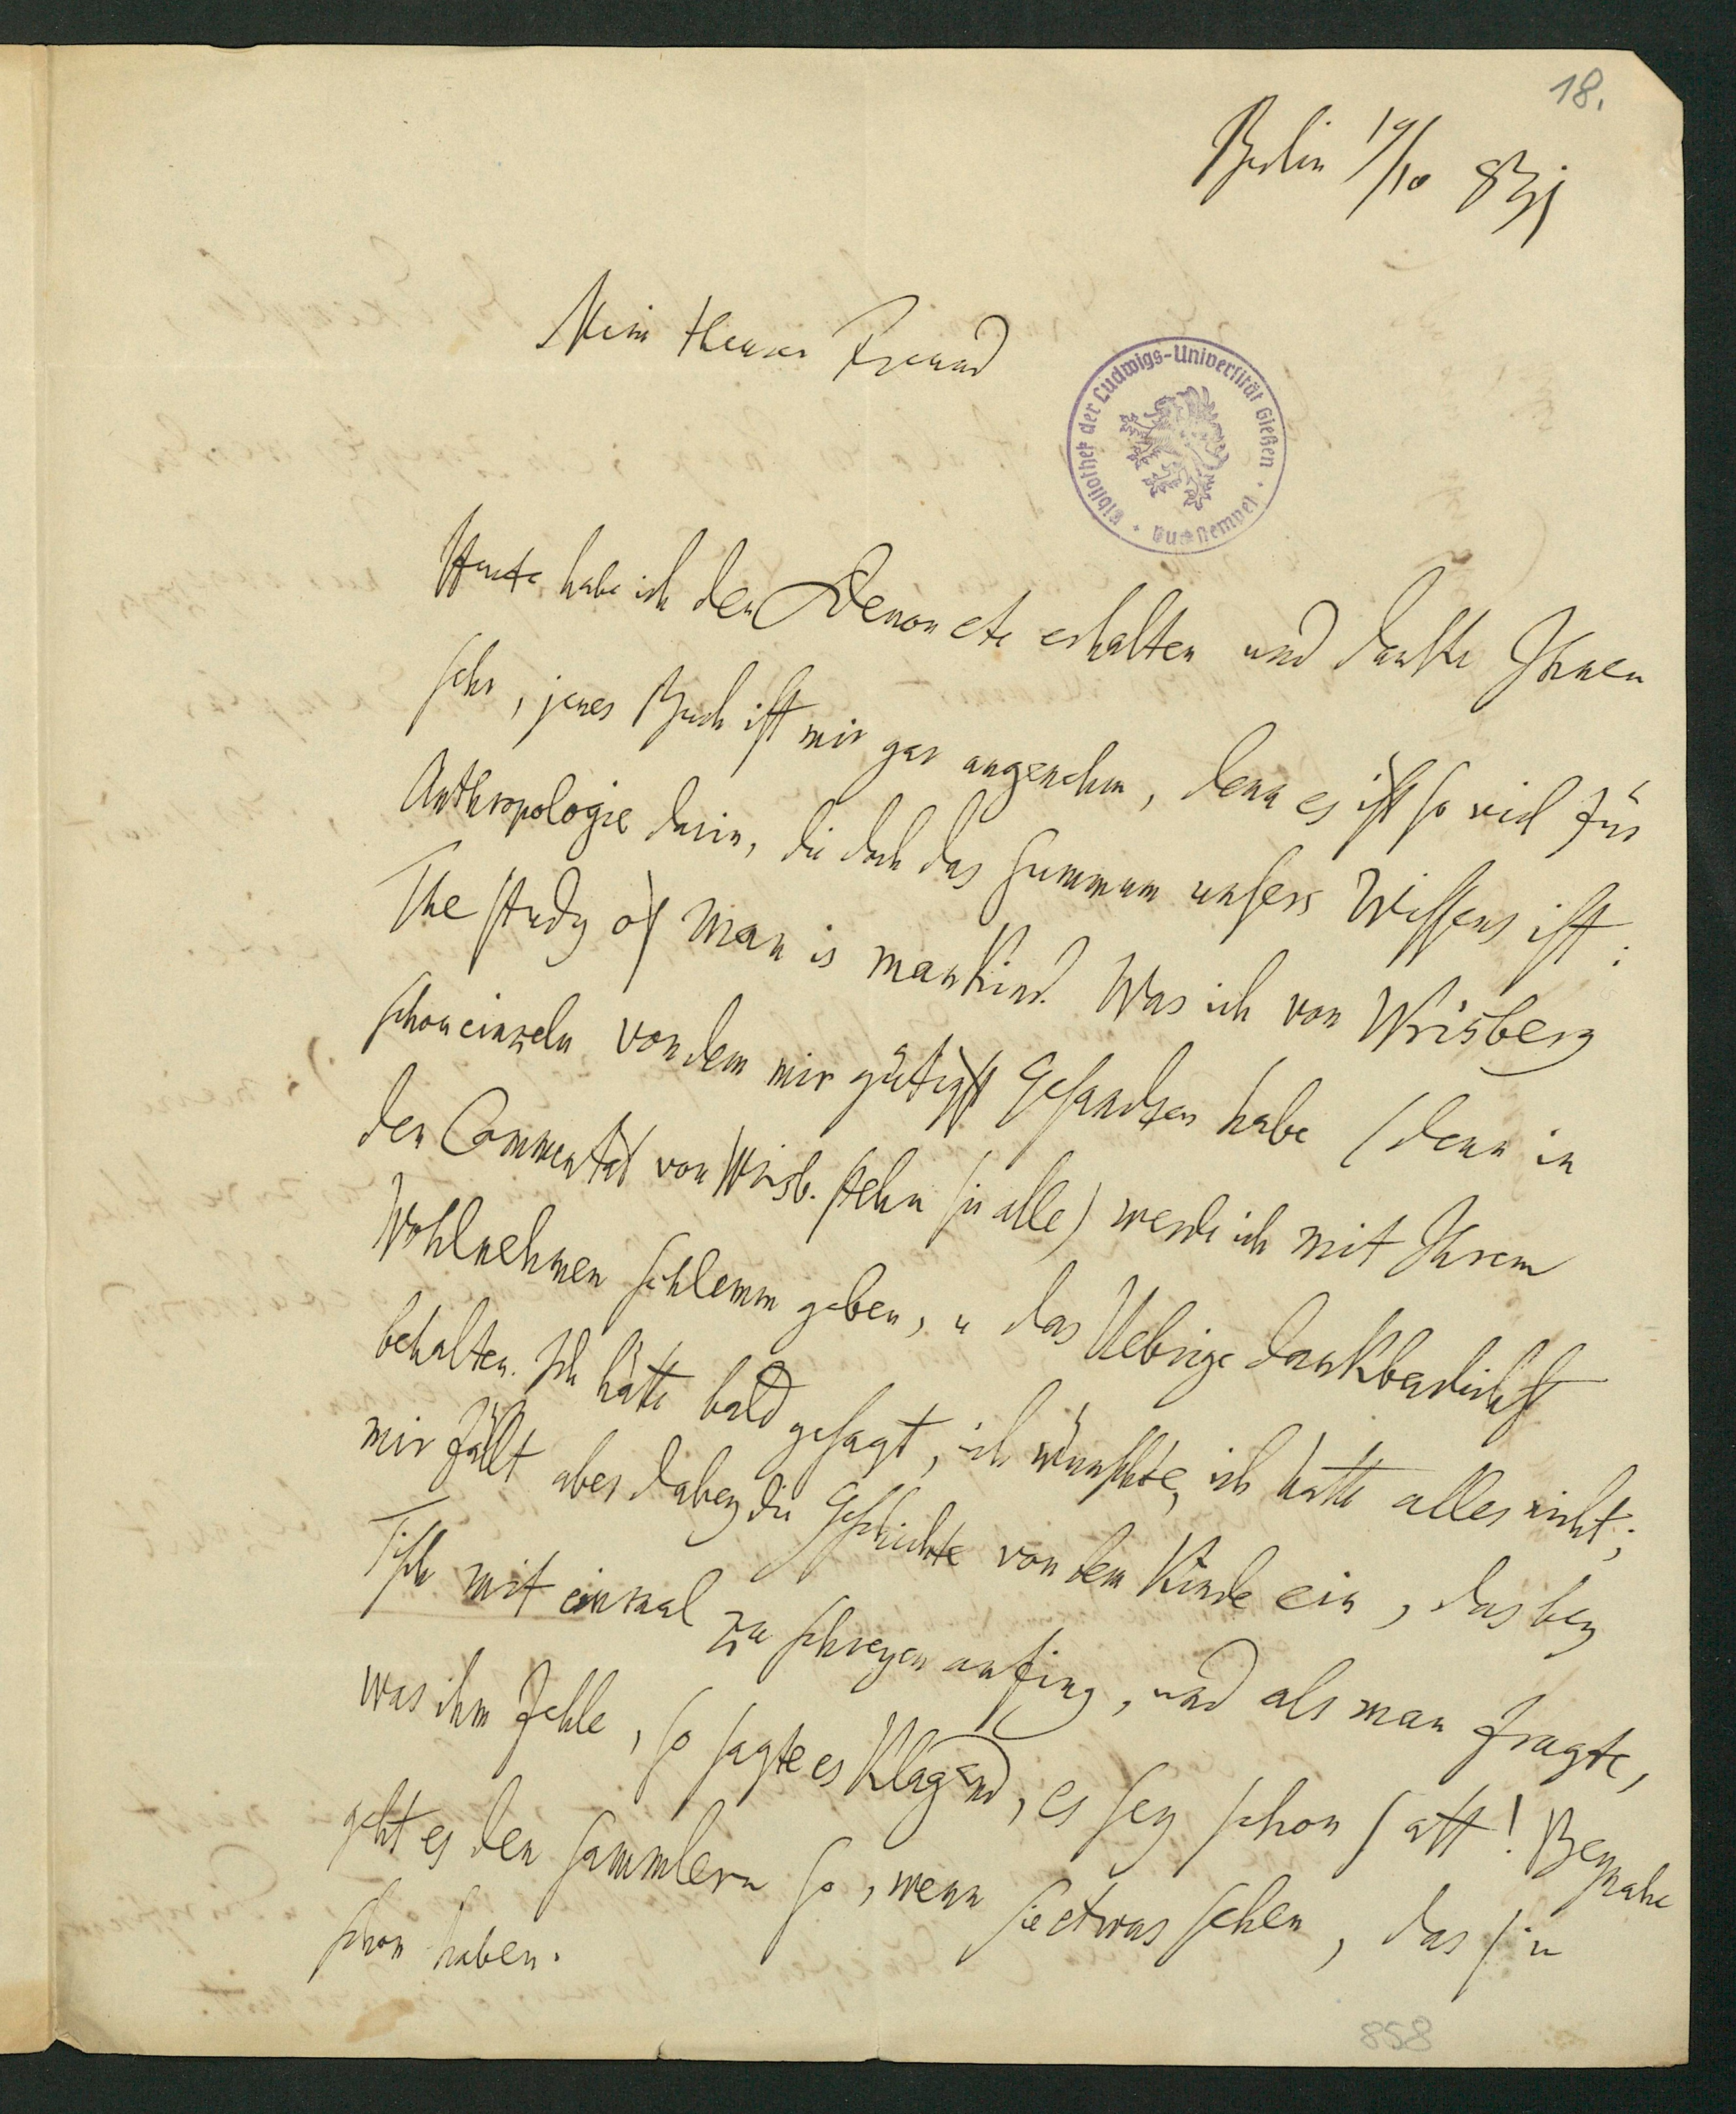 18.
Berlin 19/10 831
Mein theurer Freund
Bibliothek der Ludwigs-Universität Gießen · Buchstempel ·
Heute habe ich den Denon etc erhalten und danke Ihnen
sehr, jenes Buch ist mir gar angenehm, denn es ist so viel für
Anthropologie darin, die doch das Summum unsers Wissens ist:
The study of man is mankind. Was ich von Wrisberg
schon einzeln von dem mir gütigst Gesandten habe (denn in
den Commentat von Wrisb. stehn sie alle) werde ich mit Ihrem
Wohlnehmen Schlemm geben, u das Uebrige dankbarlichst
behalten. Ich hätte bald gesagt, ich wünschte, ich hätte alles nicht;
mir fällt aber dabey die Geschichte von dem Kinde ein, das bey
Tisch mit einmal zu schreyen anfing, und als man fragte,
was ihm fehle, so sagte es klagend, es sey schon satt! Beynahe
geht es den Sammlern so, wenn sie etwas sehen, das sie
schon haben.
858